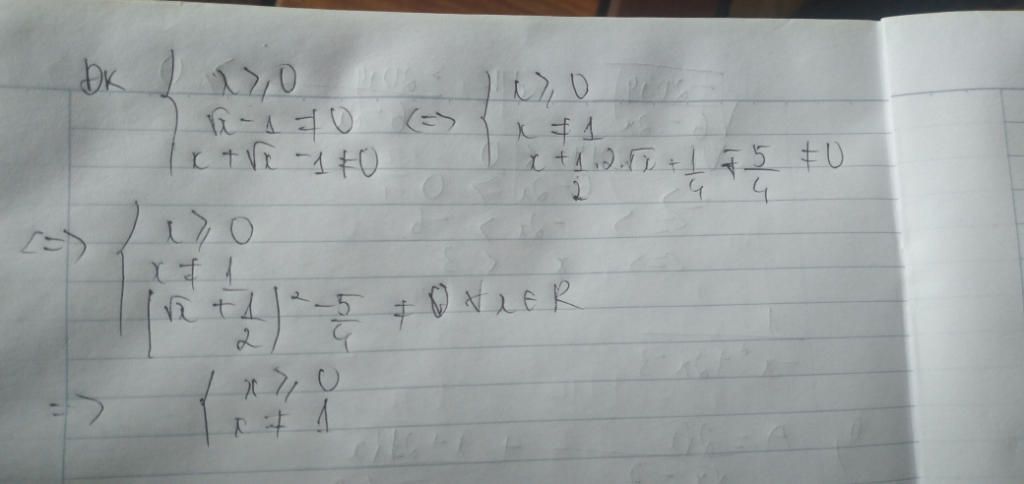 ĐK { x ≥ 0 <=> { x ≥ 0
√x - 1 ≠ 0 x ≠ 1
x + √x - 1 ≠ 0 x + 1/2 . 2 . √x + 1/4 - 5/4 ≠ 0
<=> { x ≥ 0
x ≠ 1
(√x + 1/2)² - 5/4 ≠ 0 ∀ x ∈ R
=> { x ≥ 0
x ≠ 1